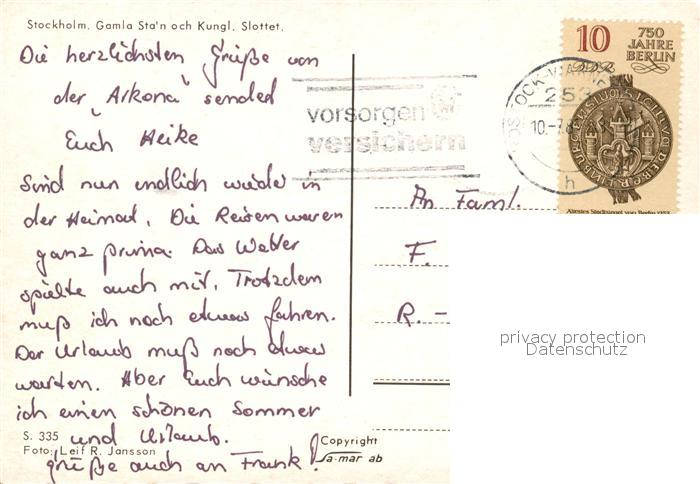 Stockholm. Gamla Sta'n och Kungl. Slottet.
Die herzlichsten Grüße von
der "Arkona" sended
Euch Heike
Sind nun endlich wieder in
der Heimat. Die Reisen waren
ganz prima. Das Wetter
spielte auch mit. Trotzdem
muß ich noch etwas fahren.
Der Urlaub muß noch etwas
warten. Aber Euch wünsche
ich einen schönen Sommer
und Urlaub.
grüße auch an Frank!
S. 335
Foto: Leif R. Jansson
Copyright
sa-mar ab
vorsorgen
versichern
253
10.-7.8
h
10
DDR
750
JAHRE
BERLIN
Ältestes Stadtsiegel von Berlin 1253
An Faml.
F.
R. -
privacy protection
Datenschutz